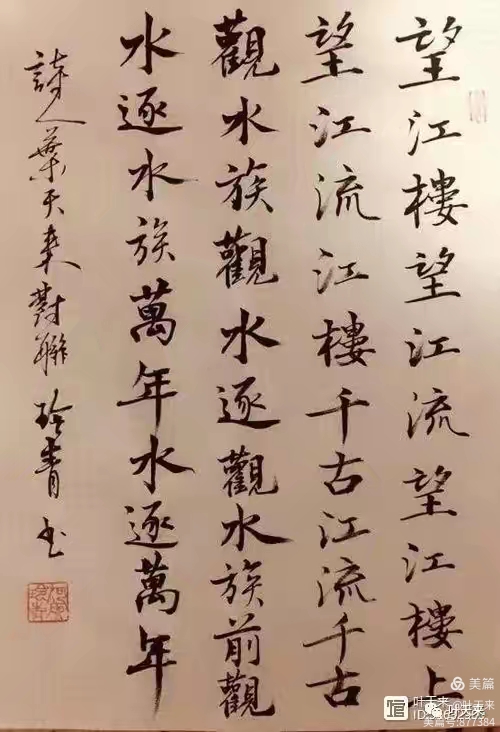 望江樓望江流望江樓上
望江流江樓千古江流千古
觀水族觀水逐觀水族前觀
水逐水族萬年水逐萬年
詩人葉天來對聯玲青书
美篇
叶天来
美篇号:877384